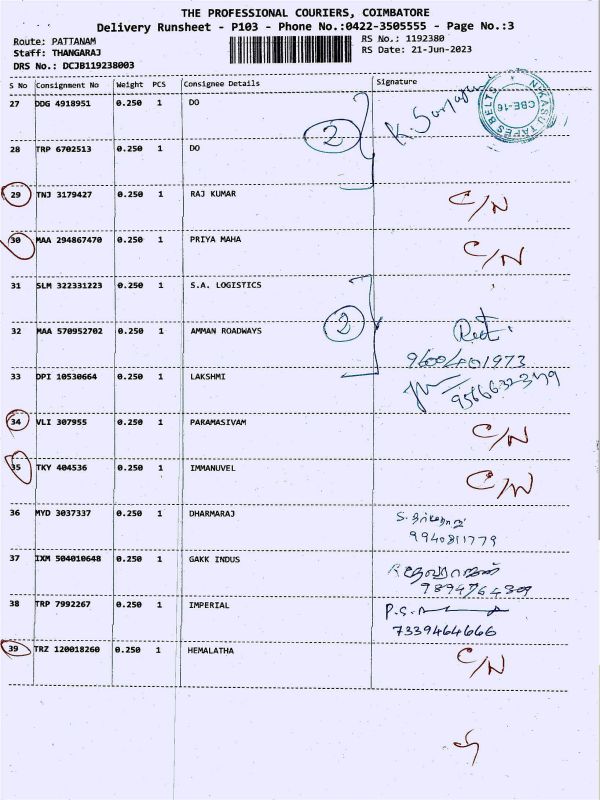 THE PROFESSIONAL COURIERS, COIMBATORE
Delivery Runsheet - P103 - Phone No.:0422-3505555 - Page No.:3
Route: PATTANAM
RS No.: 1192380
Staff: THANGARAJ
RS Date: 21-Jun-2023
DRS No.: DCJB119238003
S No Consignment No Weight PCS Consignee Details Signature
27 DDG 4918951 0.250 1 DO
NIKASU TAPES BELTS
CBE-16
2
28 TRP 6702513 0.250 1 DO
29 TNJ 3179427 0.250 1 RAJ KUMAR C/N
30 MAA 294867470 0.250 1 PRIYA MAHA C/N
31 SLM 322331223 0.250 1 S.A. LOGISTICS
2
32 MAA 570952702 0.250 1 AMMAN ROADWAYS
33 DPI 10530664 0.250 1 LAKSHMI
34 VLI 307955 0.250 1 PARAMASIVAM C/N
35 TKY 404536 0.250 1 IMMANUVEL C/N
36 MYD 3037337 0.250 1 DHARMARAJ
9940811779
37 IXM 504010648 0.250 1 GAKK INDUS
38 TRP 7992267 0.250 1 IMPERIAL P.S.
7339464666
39 TRZ 120018260 0.250 1 HEMALATHA C/N